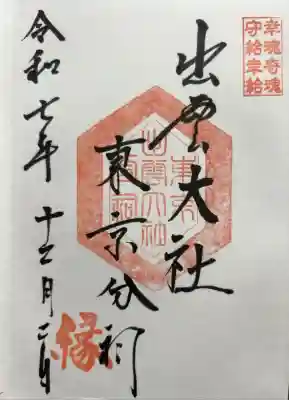 幸魂奇魂
守給幸給
出雲大社
東京分祠
東京
出雲大社
分祠
令和七年 十二月二日
縁